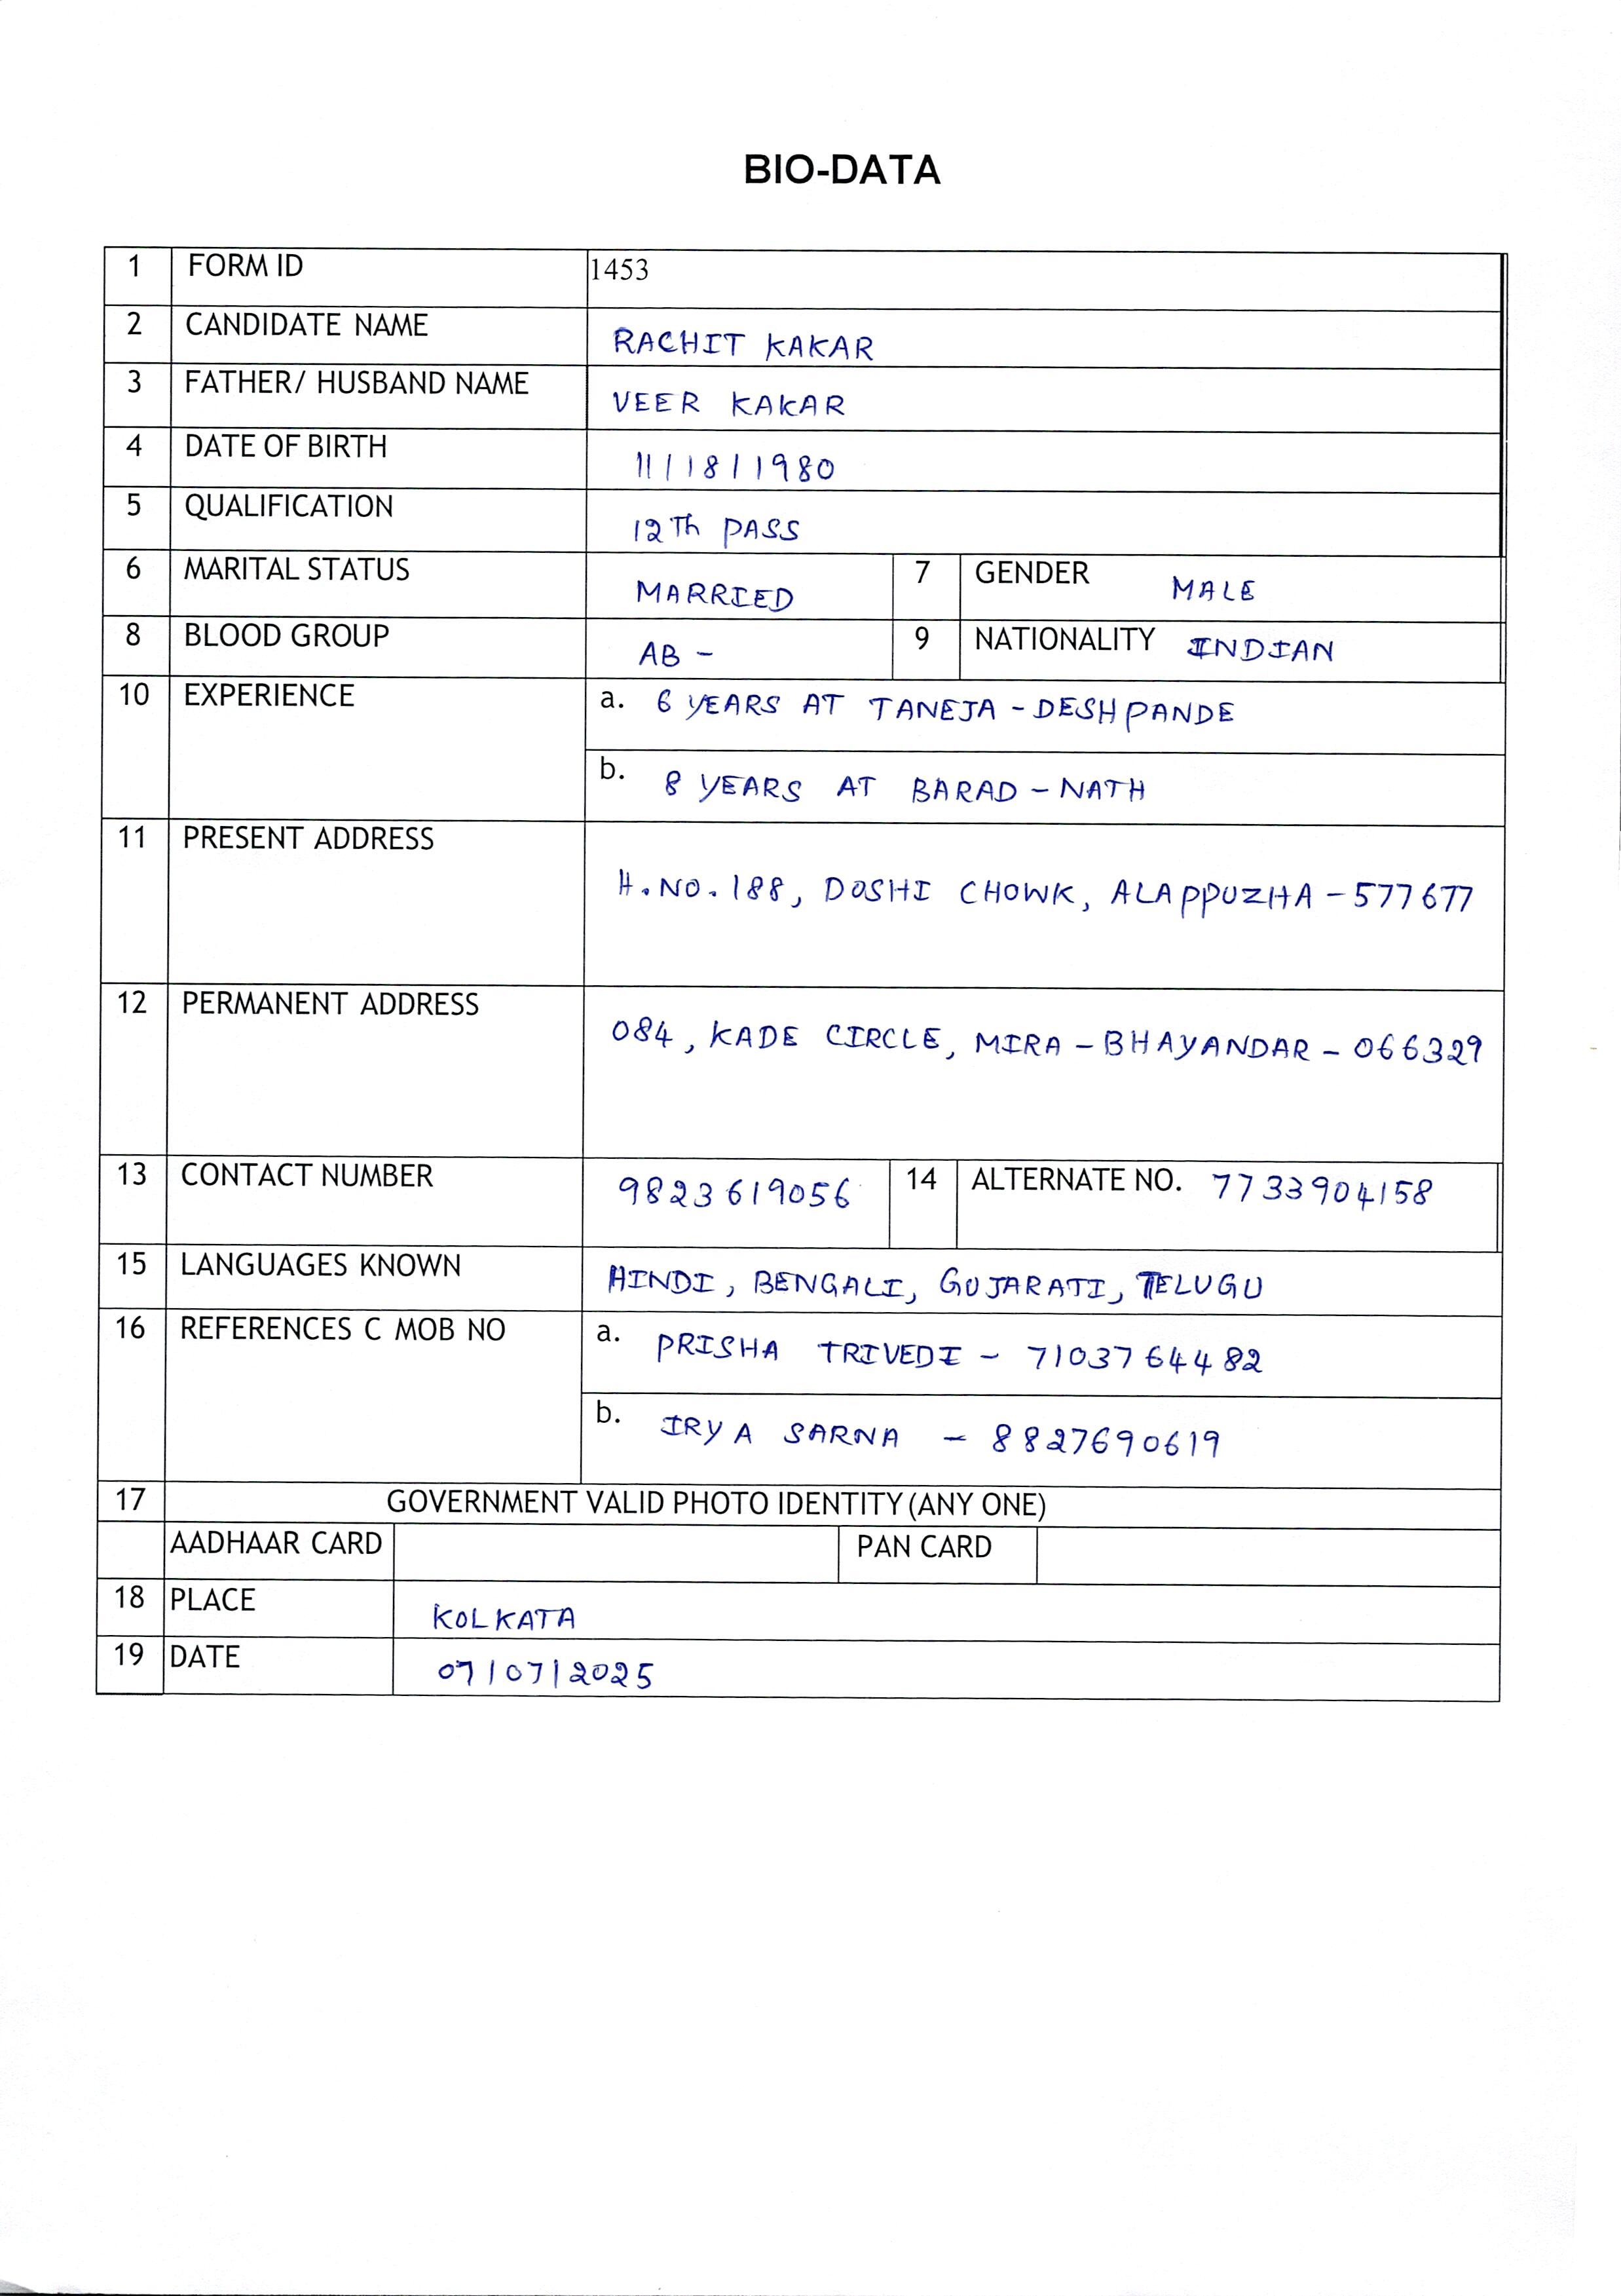 BIO-DATA
1 FORM ID 1453
2 CANDIDATE NAME RACHIT KAKAR
3 FATHER/ HUSBAND NAME VEER KAKAR
4 DATE OF BIRTH 11/18/1980
5 QUALIFICATION 12Th PASS
6 MARITAL STATUS MARRIED 7 GENDER MALE
8 BLOOD GROUP AB - 9 NATIONALITY INDIAN
10 EXPERIENCE a. 6 YEARS AT TANEJA - DESHPANDE
b. 8 YEARS AT BARAD - NATH
11 PRESENT ADDRESS H. NO. 188, DOSHI CHOWK, ALAPPUZHA - 577677
12 PERMANENT ADDRESS 084, KADE CIRCLE, MIRA - BHAYANDAR - 066329
13 CONTACT NUMBER 9823619056 14 ALTERNATE NO. 7733904158
15 LANGUAGES KNOWN HINDI, BENGALI, GUJARATI, TELUGU
16 REFERENCES C MOB NO a. PRISHA TRIVEDI - 7103764482
b. IRYA SARNA - 8827690619
17 GOVERNMENT VALID PHOTO IDENTITY (ANY ONE)
AADHAAR CARD PAN CARD
18 PLACE KOLKATA
19 DATE 07/07/2025